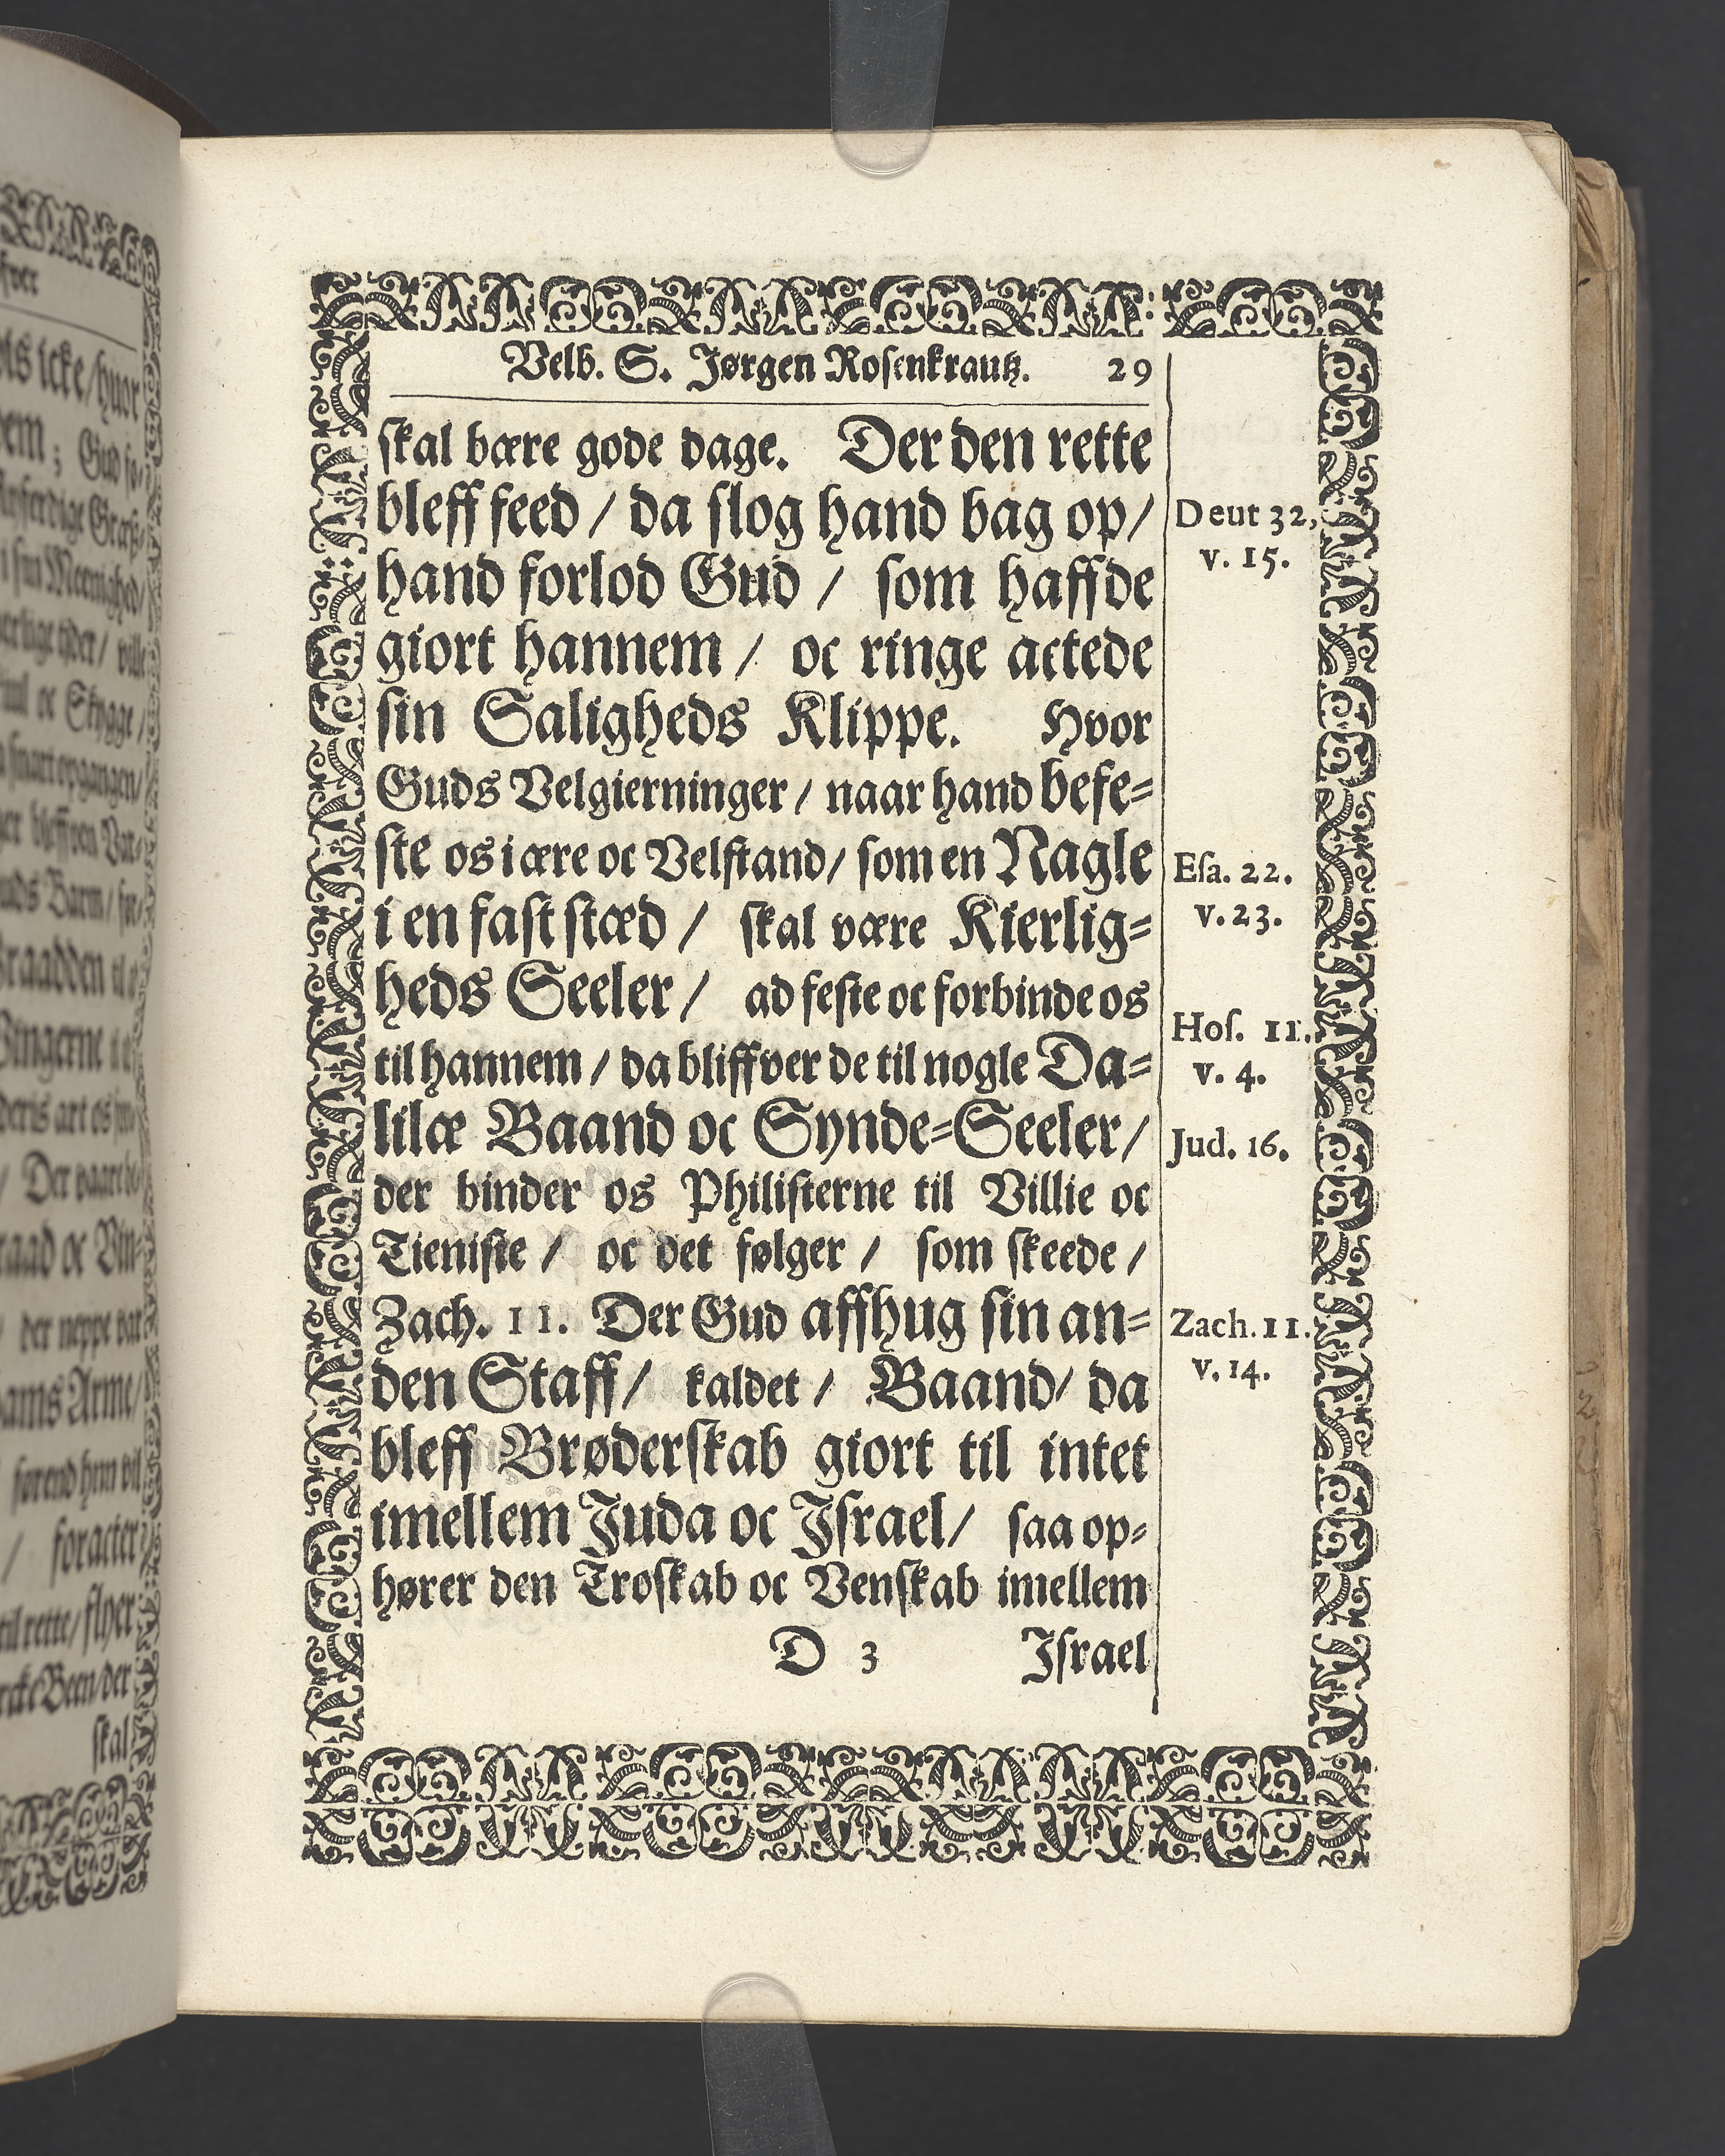 Velb. S. Jørgen Rosenkrantz. 29
skal bære gode dage. Der den rette
bleff feed / da slog hand bag op /
hand forlod Gud / som haffde
giort hannem / oc ringe actede
sin Saligheds Klippe. Hvor
Guds Velgierninger / naar hand befe-
ste os i ære oc Velstand / som en Nagle
i en fast stæd / skal være Kierlig-
heds Seeler / ad feste oc forbinde os
til hannem / da bliffver de til nogle Da-
lilæ Baand oc Synde-Seeler /
der binder os Philisterne til Villie oc
Tieniste / oc det følger / som skeede /
Zach. 11. Der Gud affhug sin an-
den Staff / kaldet / Baand / da
bleff Brøderskab giort til intet
imellem Juda oc Israel / saa op-
hører den Troskab oc Venskab imellem
D 3 Israel
Deut 32,
v. 15.
Esa. 22.
v. 23.
Hos. 11.
v. 4.
Jud. 16.
Zach. 11.
v. 14.